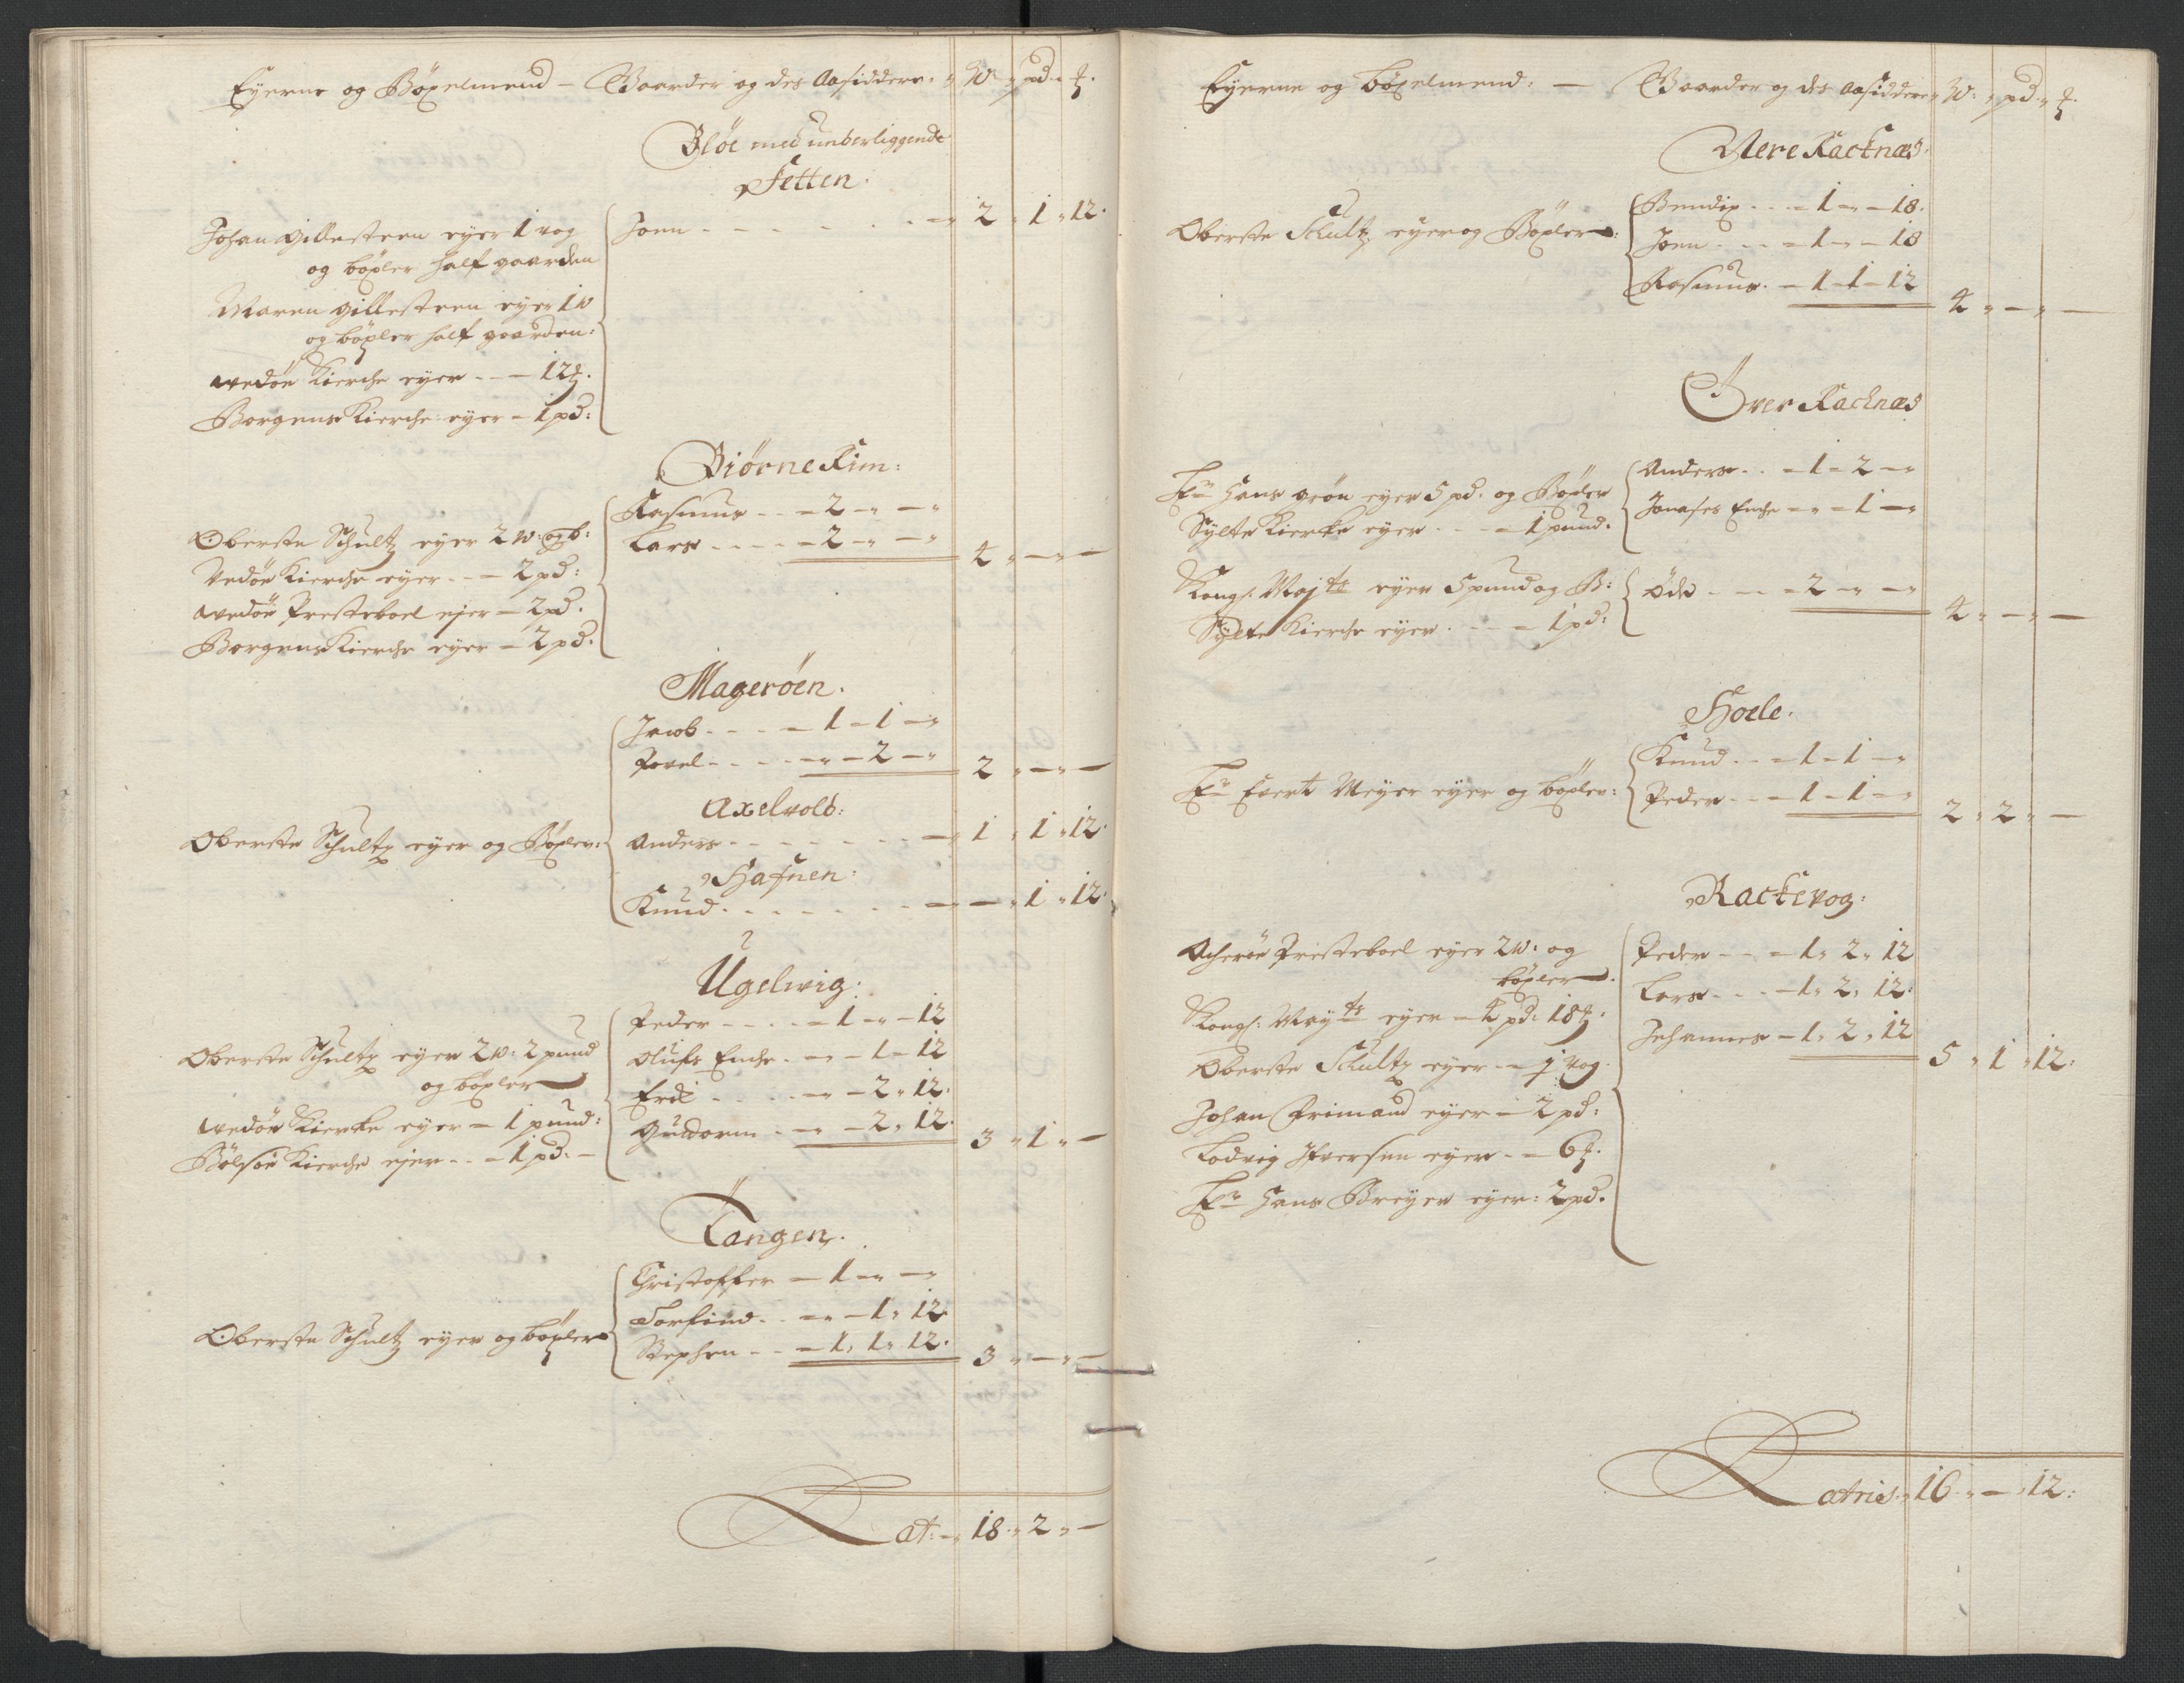 Eyerne og Böxelmend – Gaarder og des Aasiddere „ W „ pd „ ℔.
Bløe med underliggende
Setten:
Johan Gillesteen eyer 1 vog
og böxler half gaarden
Maren Gillesteen eyer 1 w
og böxler half gaarden:
Wedöe Kierche eyer – – 12 ℔.
Borgens Kierche eyer – 1 pd:
Joen – – – – – – „ 2 „ 1 „ 12.
BiörneRim:
Oberste Schultz eyer 2 w: og b:
Vedöe Kierche eyer – – 2 pd:
Wedöe Presteboel ejer – 2 pd.
Borgens Kierche eyer – 2 pd.
Rasmus – – – 2 – „ – „
Lars – – – – 2 – „ – „
4 „ – „ –
Mageröen.
Jacob – – – – 1 – 1 – „
Povel – – – – „ – 2 – „
2 „ – „ –
Axelvold:
Oberste Schultz eyer og Böxler:
Anders – – – – – – – 1 „ 1 „ 12.
Hafnen:
Knud – – – – – – – – „ 1 „ 12.
Ugelvig:
Oberste Schultz eyer 2 w: 2 pund
og böxler
Wedöe Kierke eyer – 1 pund:
Bölsöe Kierche ejer – – 1 pd: –
Peder – – – – 1 – „ – 12
Olufs Enche – „ – 1 – 12
Erik – – – – „ – 2 „ 12.
Guddorm – – „ – 2 „ 12.
3 „ 1 „ –
Tangen.
Oberste Schultz eyer og böxler
Christoffer – 1 – „ – „
Torfind – – „ – 1 „ 12.
Stephen – – – 1 „ 1 „ 12.
3 „ – „ –
Lat: – „ 18 „ 2 „ –
Eyerne og böxelmend: – Gaarder og des Aasiddere „ W: „ pd „ ℔.
Nere Racknæs.
Oberste Schultz eyer og Böxler:
Bendix – – – 1 – „ – 18.
Joen – – – 1 – „ – 18
Rasmus – 1 – 1 – 12
4 „ – „ –
Över Racknæs
Hr Hans eyer 5 pd. og Böxler
Sylte Kierke eyer – – – 1 pund.
Anders – – – 1 – 2 – „
Jonases Enche – „ – 1 – „
Kongl: Maj.ts eyer 5 pund og B:
Sylte Kierche eyer – – – 1 pd:
Öde – – – 2 – „ – „
4 „ – „ –
Hoele.
Hr Evert Meyer eyer og böxler:
Knud – – – 1 – 1 – „
Peder – – – 1 – 1 – „
2 „ 2 „ –
Rackevog:
Acheröe Presteboel eyer 2 w: og
böxler.
Kongl: May.ts eyer – 4 pd: 18 ℔:
Oberste Schultz eyer – 1 vog.
Johan Frimand eyer – 2 pd:
Lodvig Ifversen eyer – – 6 ℔.
Hr Hans Breyer eyer: 2 pd.
Peder – – – 1 „ 2 „ 12
Lars – – – 1 „ 2 „ 12:
Johannes – 1 „ 2 „ 12
5 „ 1 „ 12:
Latris „ 16 „ – „ 12: